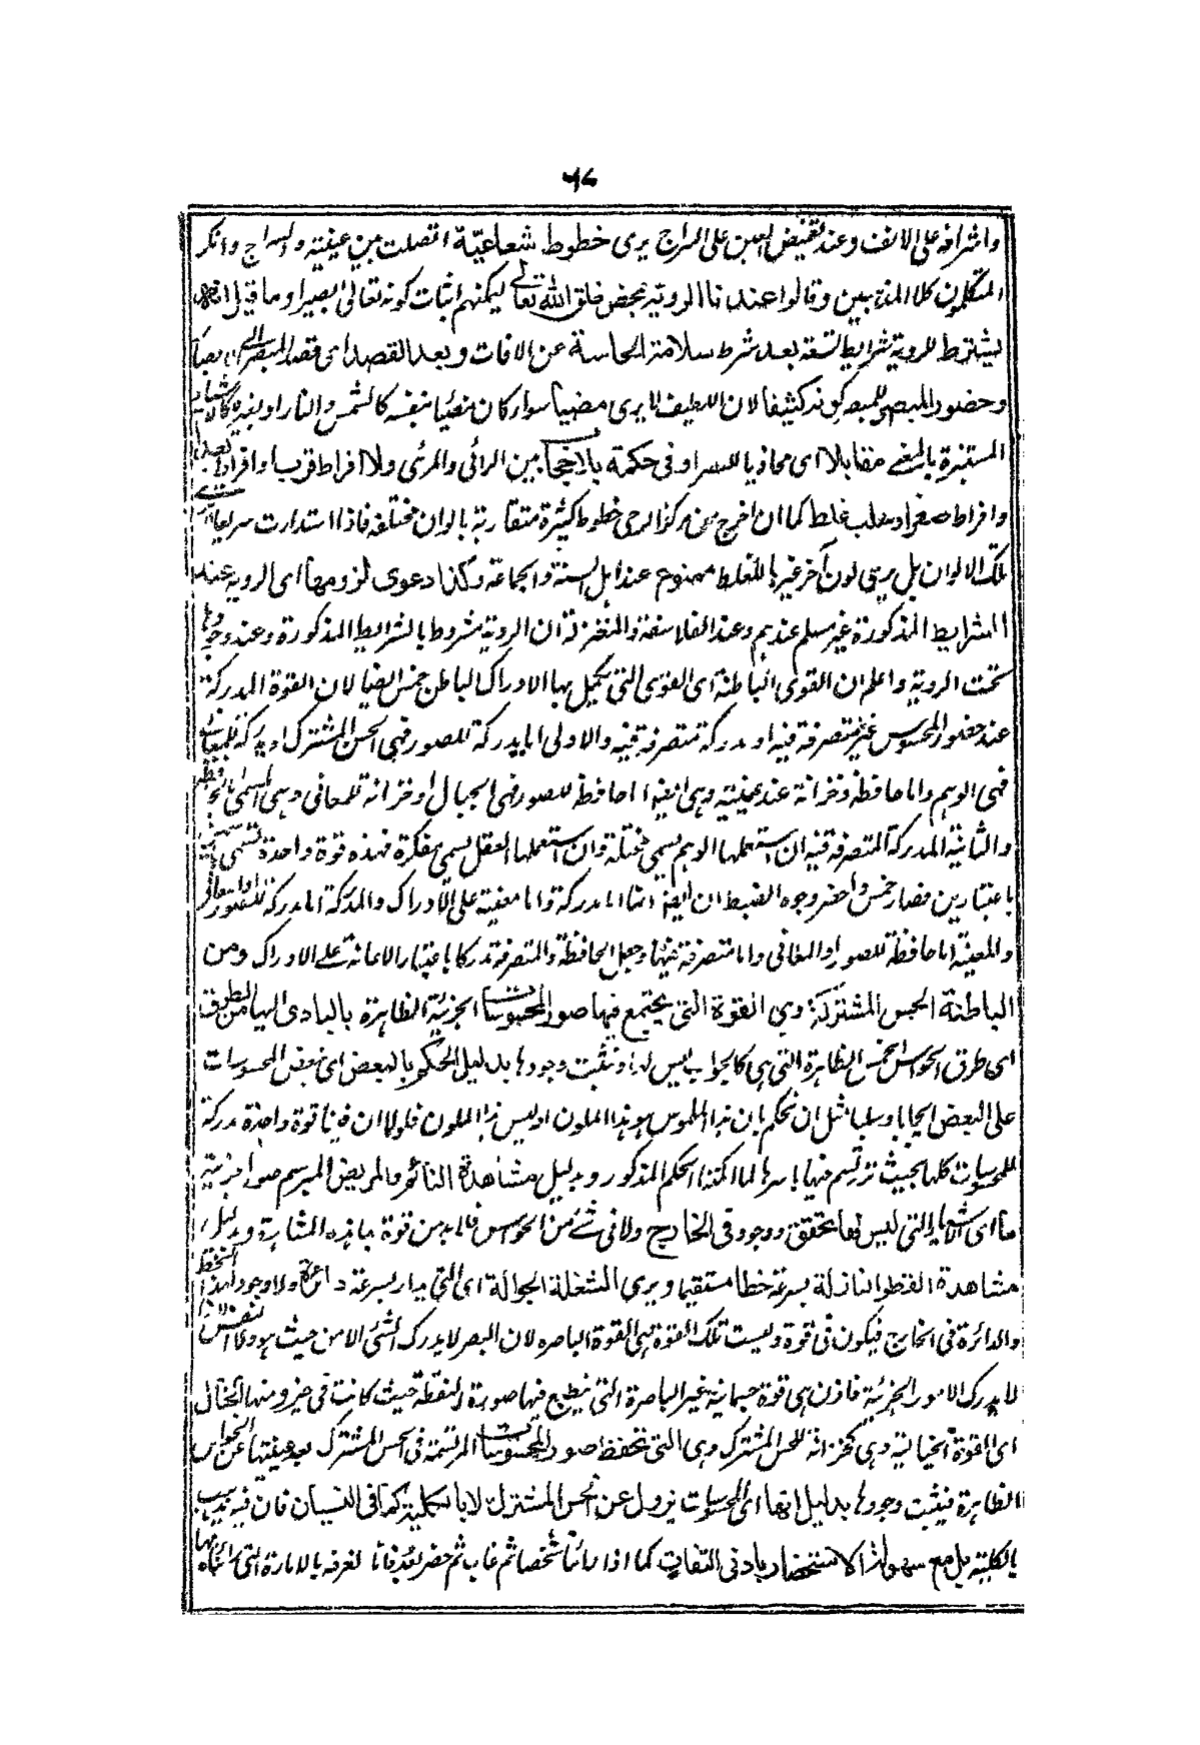 ٦٧
واشرافه على الانف وعند تغميض العين على السراج يرى خطوط شعاعيّة اتصلت بين عينيه والسراج وانكر
المتكلمون كلا المذهبين وقالوا عندنا الروية بمحض خلق الله تعالى ليمكنهم اثبات كونه تعالى بصيرا وما قيل انه
يشترط للروية شرايط تسعة بعد شرط سلامة الحاسة عن الافات وبعد القصد اى قصد المبصر الى
وحضور المبصر للمبصر كونه كثيفا لان اللطيف لا يرى مضيئا سواء كان مضيئا بنفسه كالشمس والنار او بغيره كالاشياء
المستنيرة بالمضئ مقابلا اى محاذيا للبصر او فى حكمه بلا حجاب بين الرائى والمرئى ولا افراط قرب او افراط بعد
وافراط صغر او غلط كما ان اخرج من مركز الرحى خطوط كثيرة متقاربة بالوان مختلفة فاذا استدارت سريعا
تلك الالوان بل يرى لون آخر غيرها للغلط ممنوع عند اهل السنة والجماعة وكذا دعوى لزومها اى الروية عند
الشرايط المذكورة غير مسلم عندهم وعند الفلاسفة والمعتزلة ان الروية مشروط بالشرايط المذكورة وعند وجودها
تحت الروية واعلم ان القوى الباطنة اى القوى التى يكمل بها الادراك الباطن خمس ايضا لان القوة المدركة
عند حضور المحسوس غير متصرفة فيه او مدركة متصرفة فيه والاولى اما مدركة للصور فهى الحس المشترك او مدركة للمعانى
فهى الوهم واما حافظة وخزانة عند غيبته وهى ايضا اما حافظة للصور فهى الخيال او خزانة للمعانى وهى المسمى بالحافظة
والثانية المدركة المتصرفة فيه ان استعملها الوهم يسمى متخيلة وان استعملها العقل يسمى مفكرة فهذه قوة واحدة تسمى
باعتبارين فصار خمس واحضر وجوه الضبط ان ايضا انها اما مدركة واما معينة على الادراك والمدركة اما مدركة للصور او المعانى
والمعينة اما حافظة للصور او المعانى واما متصرفة فيها وجعل الحافظة والمتصرفة مدركا باعتبار الاعانة على الادراك ومن
الباطنة الحس المشترك وهى القوة التى يجتمع فيها صور المحسوسات الجزئية الظاهرة بالتادى اليها من الطرق
اى طرق الحواس الخمس الظاهرة التى هى كالجواسيس لها ويثبت وجودها بدليل الحكم بالبعض اى بعض المحسوسات
على البعض ايجابا وسلبا مثل ان نحكم بان هذا الملموس هو هذا الملون او ليس هذا الملون فلولا ان فينا قوة واحدة مدركة
للمحسوسات كلها بحيث ترتسم فيها باسرها لما امكننا الحكم المذكور وبدليل مشاهدة النائم والمريض المبرسم صورا جزئية
ما اى اشياء التى ليس لها تحقق ووجود فى الخارج ولا فى شئ من الحواس فلا بد من قوة بها هذه المشاهدة وبدليل
مشاهدة القطر النازلة بسرعة خطا مستقيما ويرى الشعلة الجوالة اى التى يدار بسرعة دائرة ولا وجود لهذا الخط
والدائرة فى الخارج فيكون فى قوة وليست تلك القوة هى القوة الباصرة لان البصر لا يدرك الشئ الا من حيث هو ولا النفس لانها
لا يدرك الامور الجزئية فاذن هى قوة جسمانية غير الباصرة التى ينطبع فيها صورة النقطة حيث كانت فى حيز ومنها الخيال
اى القوة الخيالية وهى كخزانة للحس المشترك وهى التى تحفظ صور المحسوسات المرتسمة فى الحس المشترك بعد غيبتها عن الحواس
الظاهرة فيثبت وجودها بدليل انها اى المحسوسات يزول عن الحس المشترك لا بالكلية كما فى النسيان فان فيه يذهب
بالكلية بل مع سهولة الاستحضار بادنى التفات كما اذا راينا شخصا ثم غاب ثم حضر بعد فانا نعرفه بالامارة التى